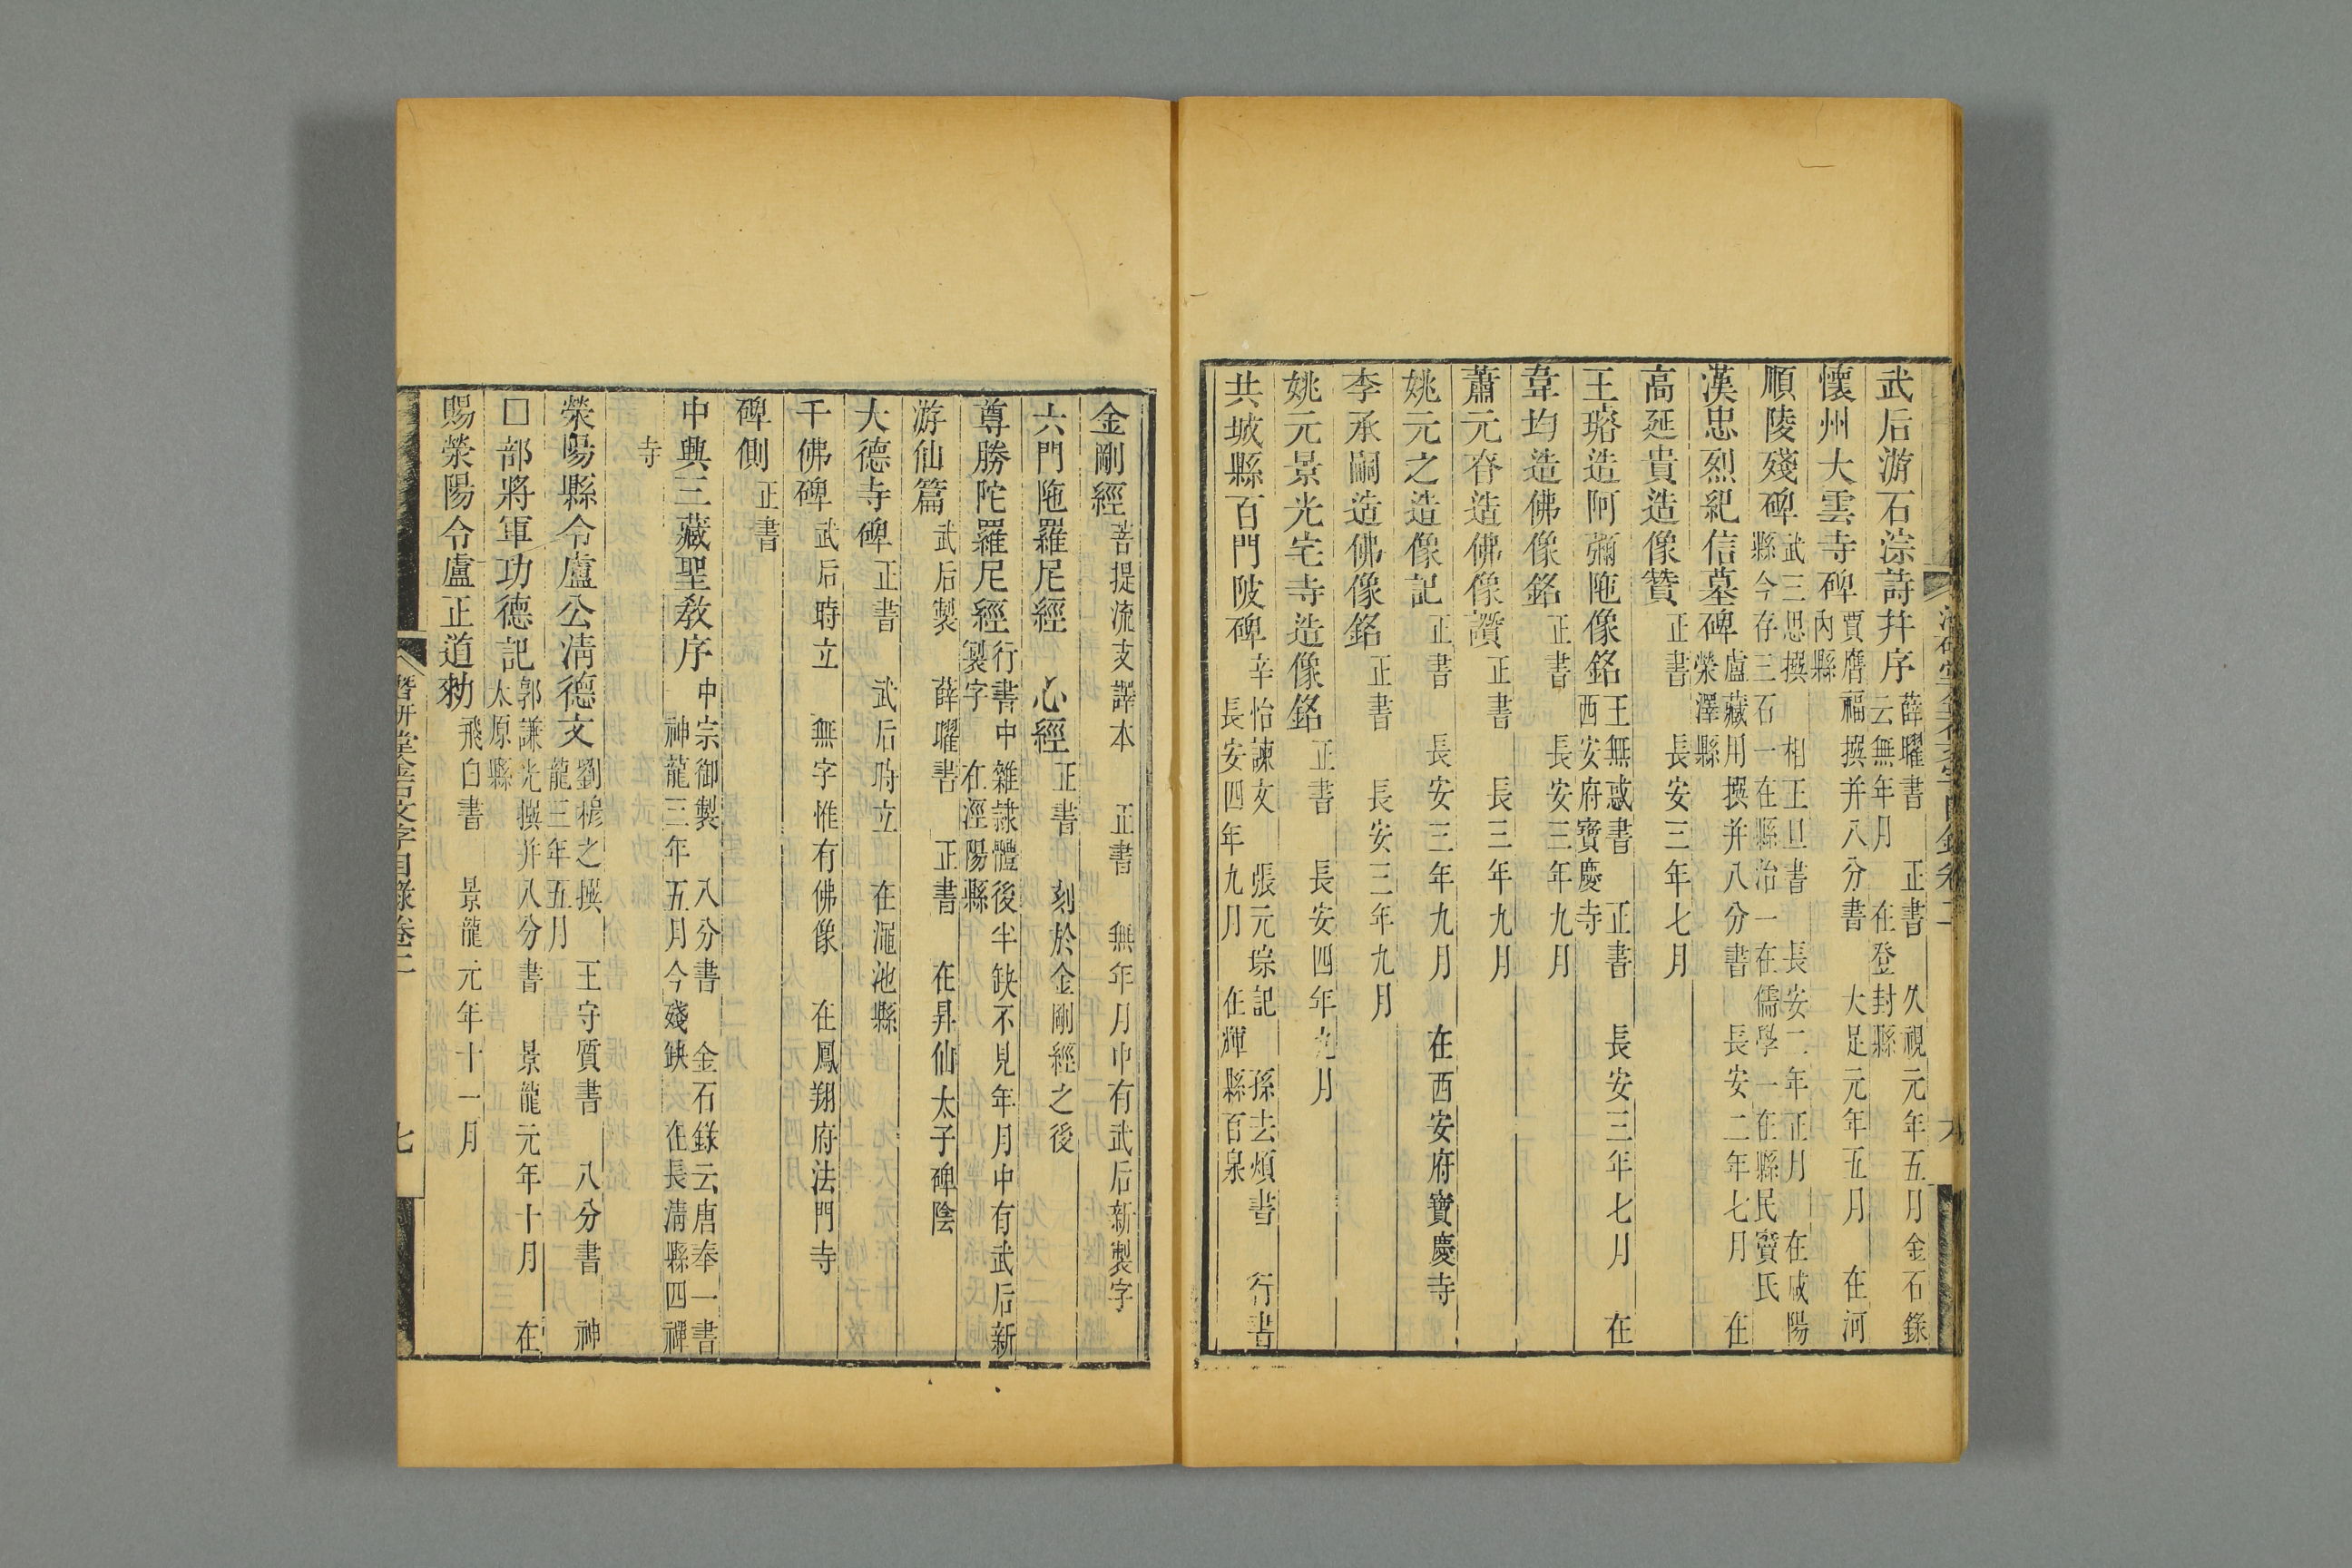 武后游石淙詩并序 薛曜書 正書 久視元年五月金石錄
云無年月 在登封縣
懷州大雲寺碑 賈膺福撰并八分書 大足元年五月 在河
內縣
順陵殘碑 武三思撰 相王旦書 長安二年正月 在咸陽
縣今存三石一在縣治一在儒學一在縣民竇氏
漢忠烈紀信墓碑 盧藏用撰并八分書 長安二年七月 在
滎澤縣
高延貴造像贊 正書 長安三年七月
王璿造阿彌陁像銘 王無惑書 正書 長安三年七月 在
西安府寶慶寺
韋均造佛像銘 正書 長安三年九月
蕭元眘造佛像讚 正書 長三年九月
姚元之造像記 正書 長安三年九月 在西安府寶慶寺
李承嗣造佛像銘 正書 長安三年九月
姚元景光宅寺造像銘 正書 長安四年九月
共城縣百門陂碑 辛怡諫文 張元琮記 孫去煩書 行書
長安四年九月 在輝縣百泉
金剛經 菩提流支譯本 正書 無年月中有武后新製字
六門陁羅尼經 心經 正書 刻於金剛經之後
尊勝陀羅尼經 行書中雜隷體後半缺不見年月中有武后新
製字 在涇陽縣
游仙篇 武后製 薛曜書 正書 在昇仙太子碑陰
大德寺碑 正書 武后時立 在澠池縣
千佛碑 武后時立 無字惟有佛像 在鳳翔府法門寺
碑側 正書
中興三藏聖教序 中宗御製 八分書 金石錄云唐奉一書
神龍三年五月今殘缺 在長淸縣四禪
寺
滎陽縣令盧公淸德文 劉穆之撰 王守質書 八分書 神
龍三年五月
□部將軍功德記 郭謙光撰并八分書 景龍元年十月 在
太原縣
賜滎陽令盧正道勑 飛白書 景龍元年十一月
潛研堂金石文字目錄卷二 七